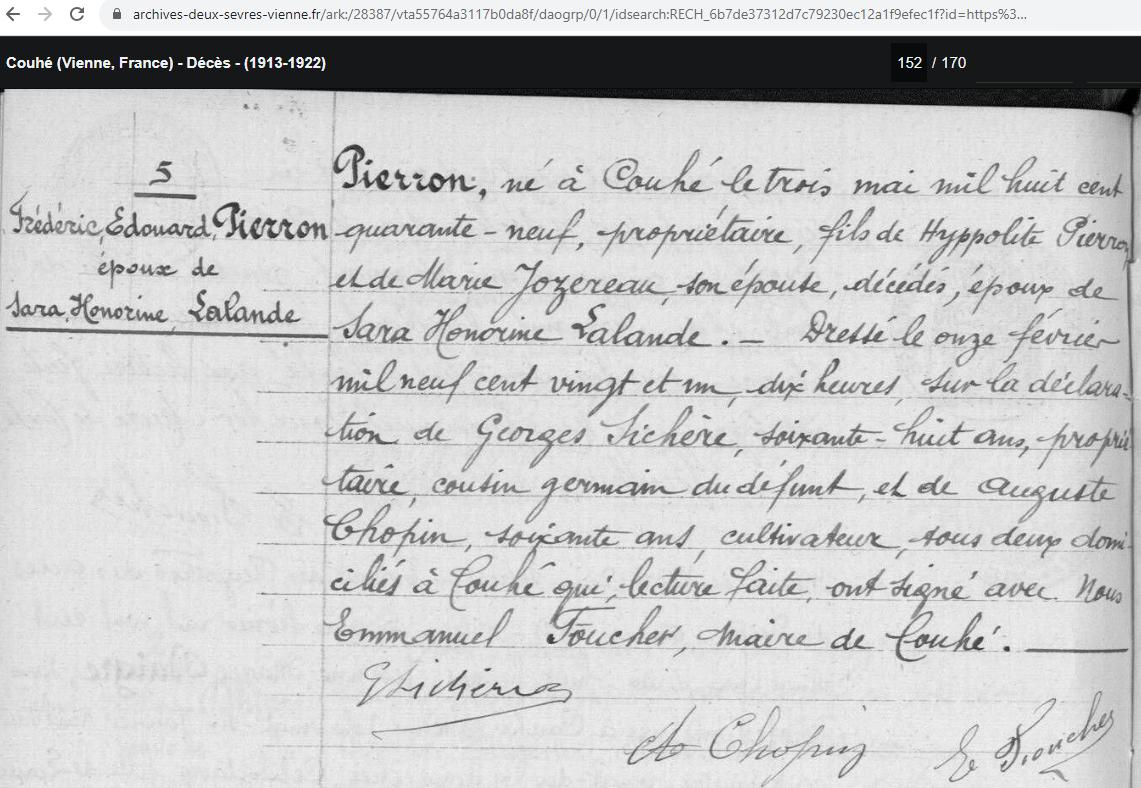 archives-deux-sevres-vienne.fr/ark:/28387/vta55764a3117b0da8f/daogrp/0/1/idsearch:RECH_6b7de37312d7c79230ec12a1f9efec1f?id=https%3...
Couhé (Vienne, France) - Décès - (1913-1922)
152 / 170
5
Frédéric, Edouard, Pierron
époux de
Sara, Honorine, Lalande
Pierron, né à Couhé le trois mai mil huit cent
quarante-neuf, propriétaire, fils de Hyppolite Pierron,
et de Marie Jozereau, son épouse, décédés, époux de
Sara Honorine Lalande. — Dressé le onze février
mil neuf cent vingt et un, dix heures, sur la déclara-
tion de Georges Sichère, soixante-huit ans, proprié
taire, cousin germain du défunt, et de Auguste
Chopin, soixante ans, cultivateur, tous deux domi-
ciliés à Couhé qui, lecture faite, ont signé avec Nous
Emmanuel Foucher, Maire de Couhé.
G Sichère
A Chopin
E Foucher